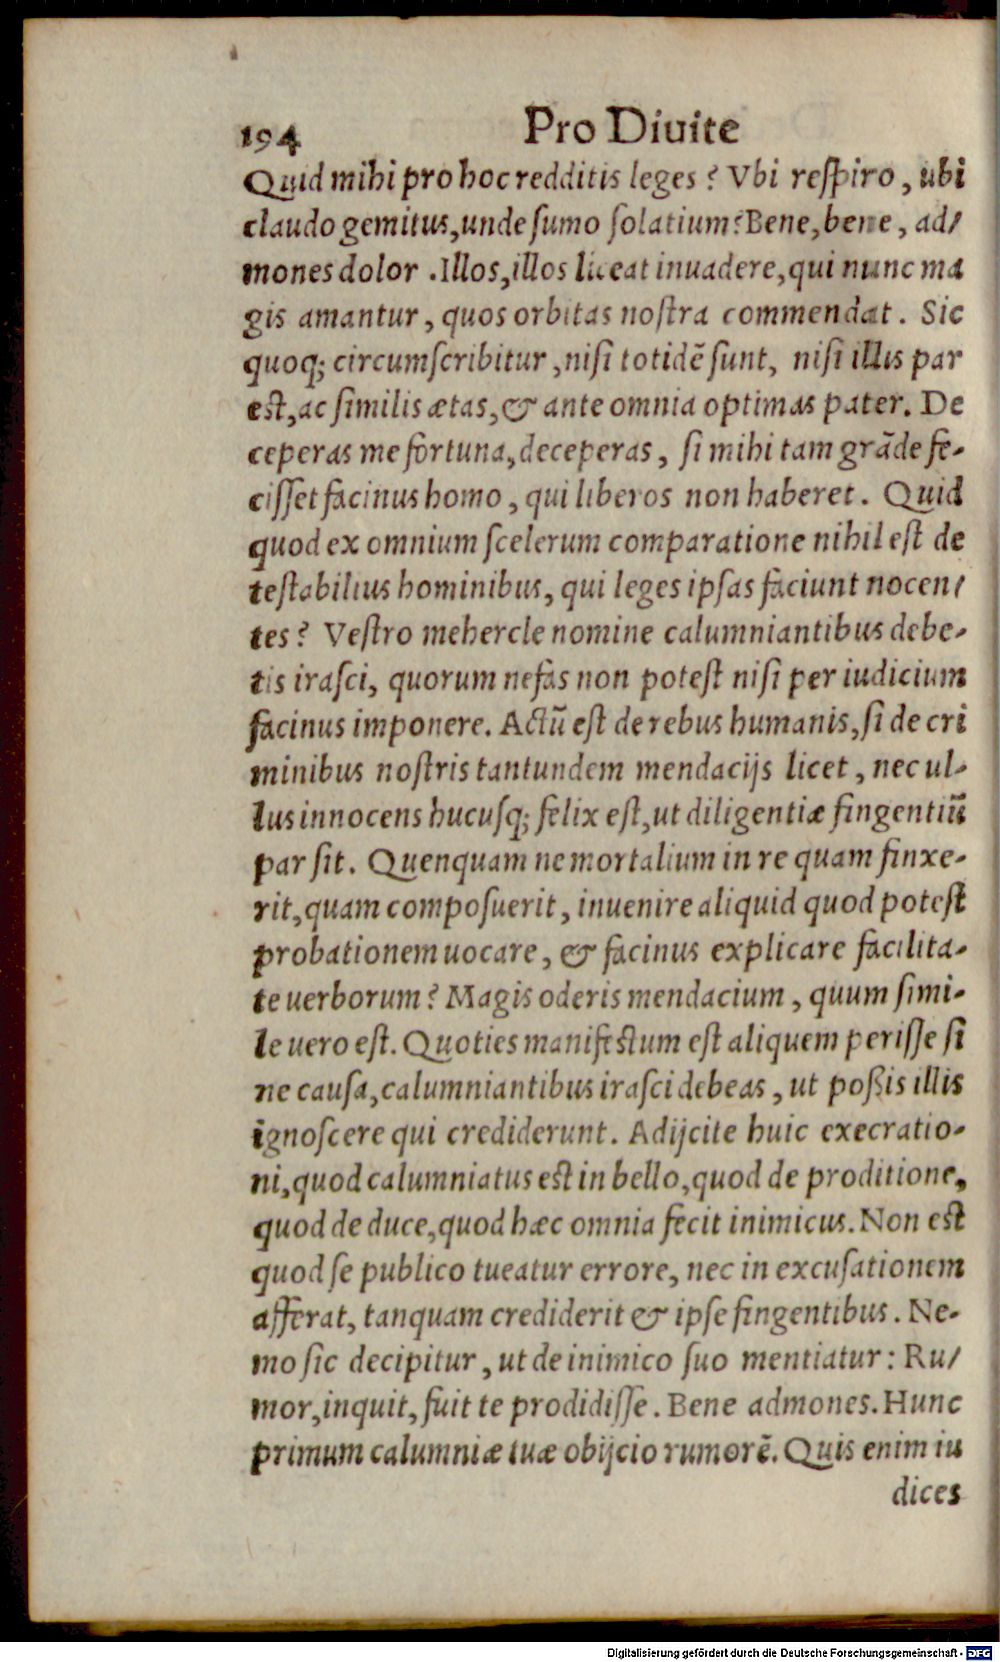 194 Pro Diuite
Quid mihi pro hoc redditis leges? Vbi respiro, ubi
claudo gemitus, unde sumo solatium? Bene, bene, ad/
mones dolor. Illos, illos liceat inuadere, qui nunc ma
gis amantur, quos orbitas nostra commendat. Sic
quoq; circumscribitur, nisi totidē sunt, nisi illis par
est, ac similis ætas, & ante omnia optimas pater. De
ceperas me fortuna, deceperas, si mihi tam grāde fe-
cisset facinus homo, qui liberos non haberet. Quid
quod ex omnium scelerum comparatione nihil est de
testabilius hominibus, qui leges ipsas faciunt nocen/
tes? Vestro mehercle nomine calumniantibus debe-
tis irasci, quorum nefas non potest nisi per iudicium
facinus imponere. Actū est de rebus humanis, si de cri
minibus nostris tantundem mendacijs licet, nec ul-
lus innocens hucusq; felix est, ut diligentiæ fingentiū
par sit. Quenquam ne mortalium in re quam finxe-
rit, quam composuerit, inuenire aliquid quod potest
probationem uocare, & facinus explicare facilita-
te uerborum? Magis oderis mendacium, quum simi-
le uero est. Quoties manifestum est aliquem perisse si
ne causa, calumniantibus irasci debeas, ut poßis illis
ignoscere qui crediderunt. Adijcite huic execratio-
ni, quod calumniatus est in bello, quod de proditione,
quod de duce, quod hæc omnia fecit inimicus. Non est
quod se publico tueatur errore, nec in excusationem
afferat, tanquam crediderit & ipse fingentibus. Ne-
mo sic decipitur, ut de inimico suo mentiatur: Ru/
mor, inquit, fuit te prodidisse. Bene admones. Hunc
primum calumniæ tuæ obijcio rumorē. Quis enim iu
dices
Digitalisierung gefördert durch die Deutsche Forschungsgemeinschaft - DFG